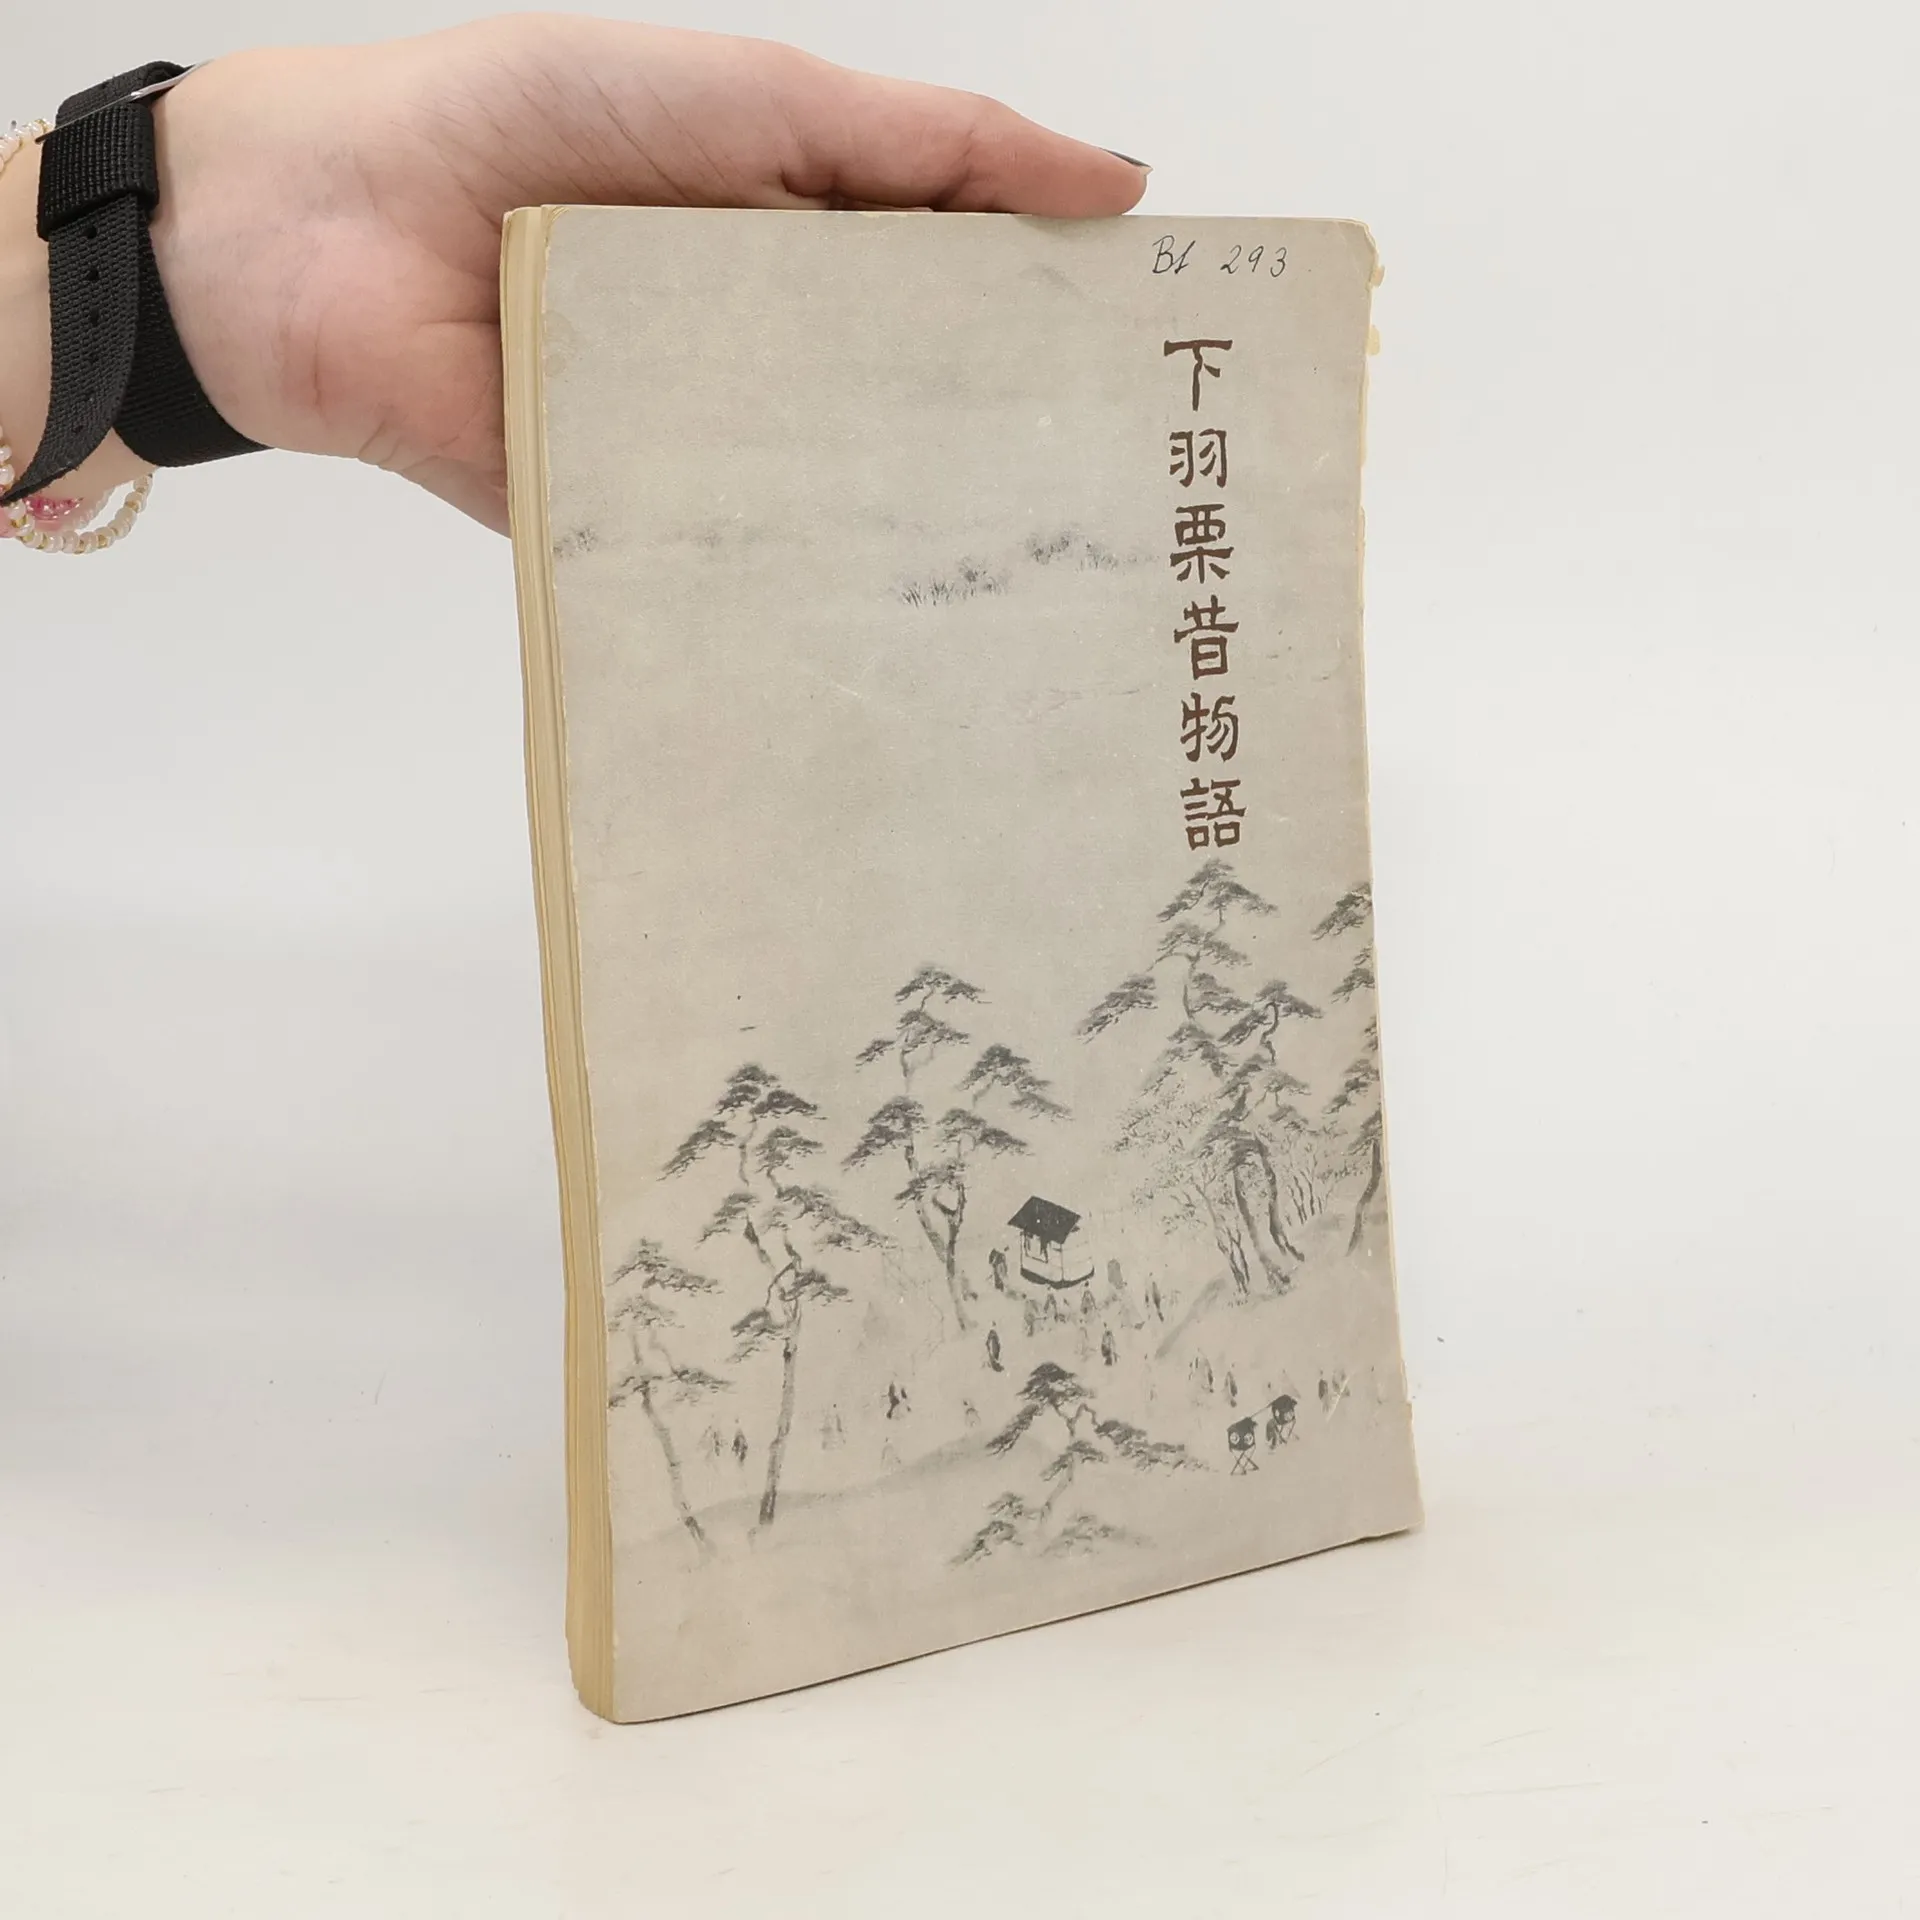 B1 293
下羽栗昔物語